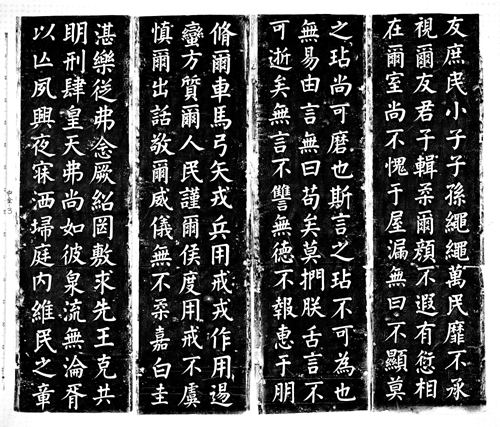 湛樂從弗念厥紹罔敷求先王克共
明刑肆皇天弗尚如彼泉流無淪胥
以亡夙興夜寐洒埽庭內維民之章
脩爾車馬弓矢戎兵用戒戎作用逷
蠻方質爾人民謹爾侯度用戒不虞
慎爾出話敬爾威儀無不柔嘉白圭
之玷尚可磨也斯言之玷不可為也
無易由言無曰苟矣莫捫朕舌言不
可逝矣無言不讐無德不報惠于朋
友庶民小子子孫繩繩萬民靡不承
視爾友君子輯柔爾顏不遐有愆相
在爾室尚不愧于屋漏無曰不顯莫